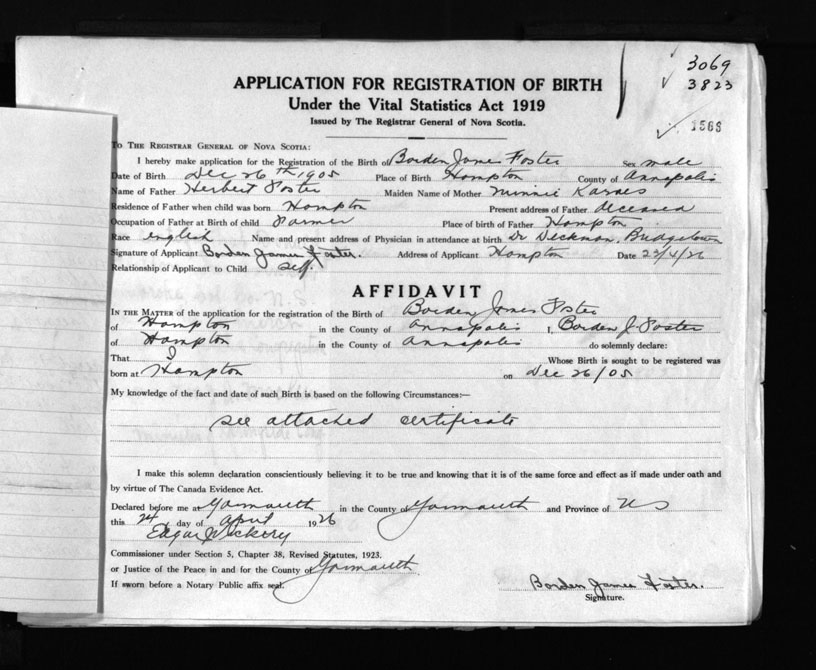 3069
3823
1563
APPLICATION FOR REGISTRATION OF BIRTH
Under the Vital Statistics Act 1919
Issued by The Registrar General of Nova Scotia.
To The Registrar General of Nova Scotia:
I hereby make application for the Registration of the Birth of Borden James Foster Sex male
Date of Birth Dec 26th 1905 Place of Birth Hampton County of Annapolis
Name of Father Herbert Foster Maiden Name of Mother Minnie
Residence of Father when child was born Hampton Present address of Father deceased
Occupation of Father at Birth of child Farmer Place of birth of Father Hampton
Race english Name and present address of Physician in attendance at birth Dr Deckman, Bridgetown
Signature of Applicant Borden James Foster. Address of Applicant Hampton Date 23/4/26
Relationship of Applicant to Child self.
AFFIDAVIT
In the Matter of the application for the registration of the Birth of Borden James Foster
of Hampton in the County of Annapolis I, Borden J. Foster
of Hampton in the County of Annapolis do solemnly declare:
That I Whose Birth is sought to be registered was
born at Hampton on Dec 26/05
My knowledge of the fact and date of such Birth is based on the following Circumstances:—
see attached certificate
I make this solemn declaration conscientiously believing it to be true and knowing that it is of the same force and effect as if made under oath and
by virtue of The Canada Evidence Act.
Declared before me at Yarmouth in the County of Yarmouth and Province of NS
this 24 day of April 1926
Edgar Vickery
Commissioner under Section 5, Chapter 38, Revised Statutes, 1923.
or Justice of the Peace in and for the County of Yarmouth
If sworn before a Notary Public affix seal.
Borden James Foster.
Signature.